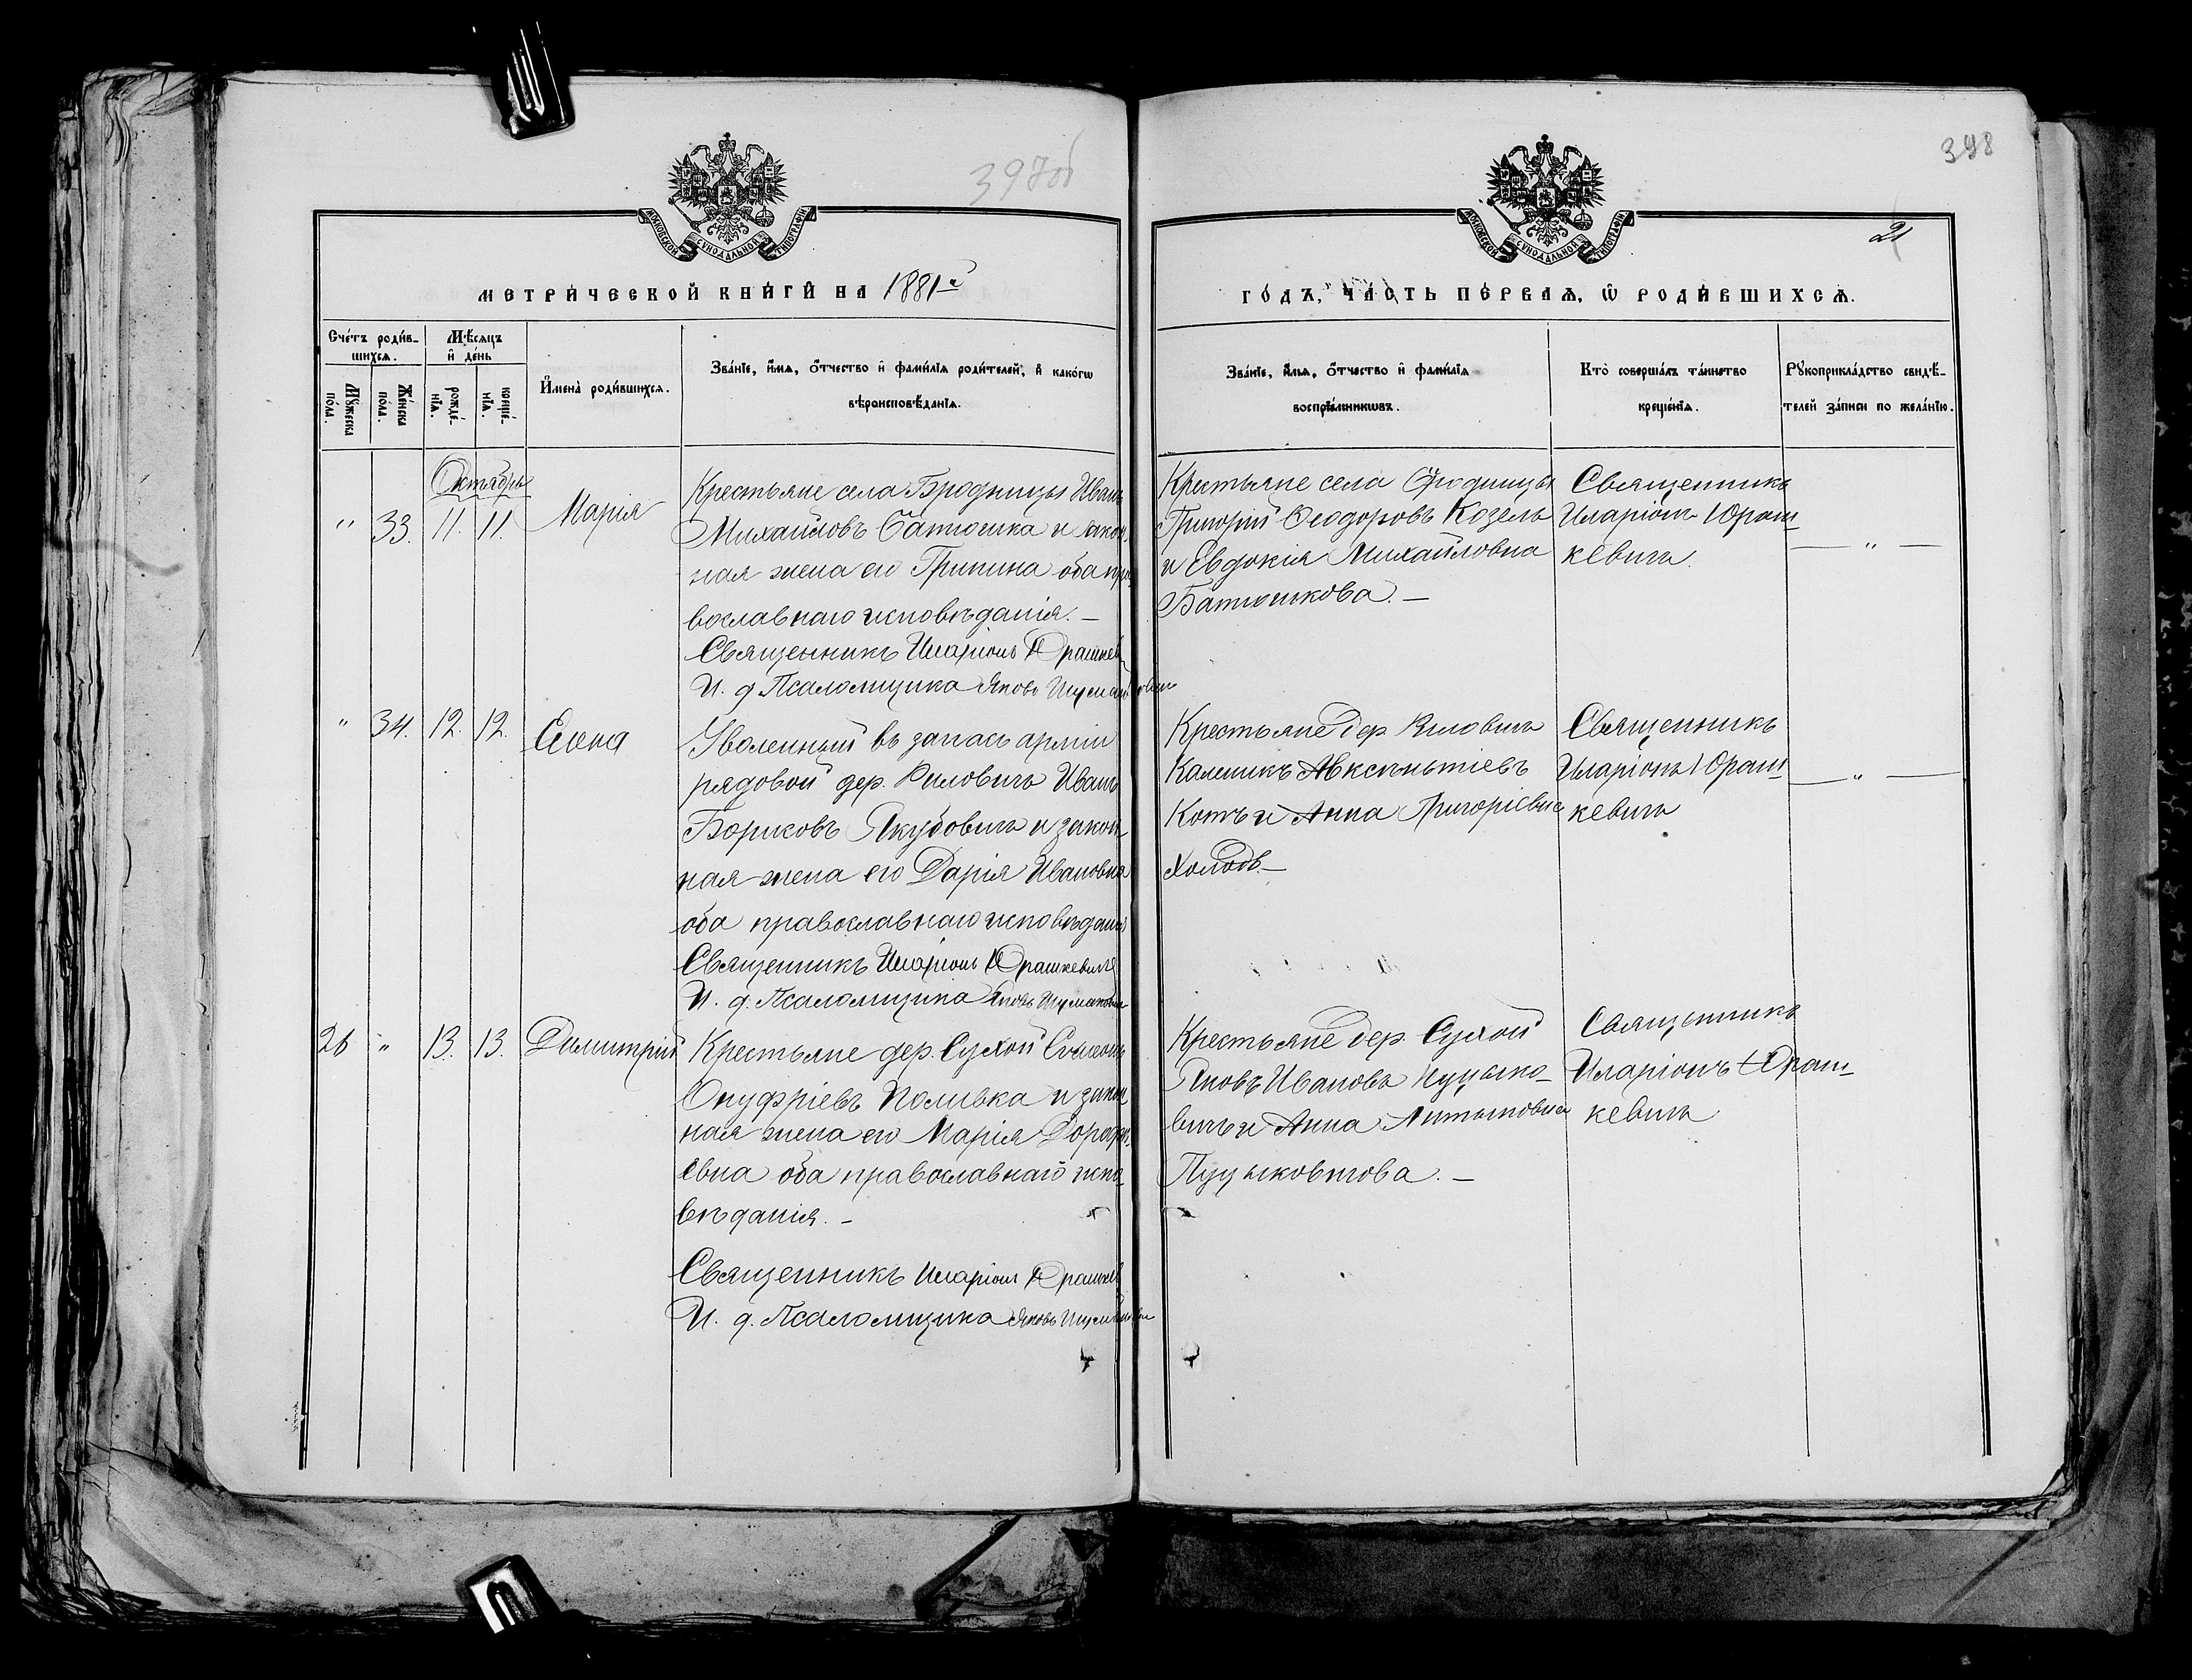 397об
398
21
МОСКОВСКОЙ СѴНОДАЛЬНОЙ ТИПОГРАФІИ
МОСКОВСКОЙ СѴНОДАЛЬНОЙ ТИПОГРАФІИ
МЕТРИЧЕСКОЙ КНИГИ НА 1881й
ГОДЪ, ЧАСТЬ ПЕРВАЯ, Ѡ РОДИВШИХСЯ.
Счетъ родив-
шихся.
Мужеска
пола.
Женска
пола.
Мѣсяцъ
и день
рожде-
нія.
креще-
нія.
Имена родившихся.
Званіе, имя, отчество и фамилія родителей, и какогѡ
вѣроисповѣданія.
Званіе, имя, отчество и фамилія
воспріемникѡвъ.
Кто совершалъ таинство
крещенія.
Рукоприкладство свидѣ-
телей записи по желанію.
Октябрь
" 33. 11. 11. Марія
Крестьяне села Бродницы Иванъ
Михайловъ Батюшка и закон
ная жена его Грипина оба пра
вославнаго исповѣданія. —
Священникъ Иларіонъ Юрашкев
И. д. Псаломщика Яковъ
Крестьяне села Бродницы
Григорій Ѳеодоровъ Козелъ
и Евдокія Михайловна
Батюшкова. —
Священникъ
Иларіонъ Юраш
кевичъ.
— " —
" 34. 12. 12. Елена
Уволенный въ запасъ арміи
рядовой дер. Рыловичъ Иванъ
Борисовъ Якубовичъ и закон
ная жена его Дарія Ивановна
оба православнаго исповѣданія
Священникъ Иларіонъ Юрашкевичъ
И. д. Псаломщика Яковъ
Крестьяне дер. Рыловичъ
Калиникъ Авксентіевъ
Котъ и Анна Григоріевна
Холодъ —
Священникъ
Иларіонъ Юраш
кевичъ
— " —
26 " 13. 13. Димитрій
Крестьяне дер. Сухой Симеонъ
Онуфріевъ Поливка и закон
ная жена его Марія Дороѳе
евна оба православнаго испо
вѣданія. —
Священникъ Иларіонъ Юрашкев
И. д. Псаломщика Яковъ
Крестьяне дер. Сухой
Яковъ Ивановъ Пуцыко-
вичъ и Анна Антоновна
Пуцыковичова. —
Священникъ
Иларіонъ Юраш
кевичъ